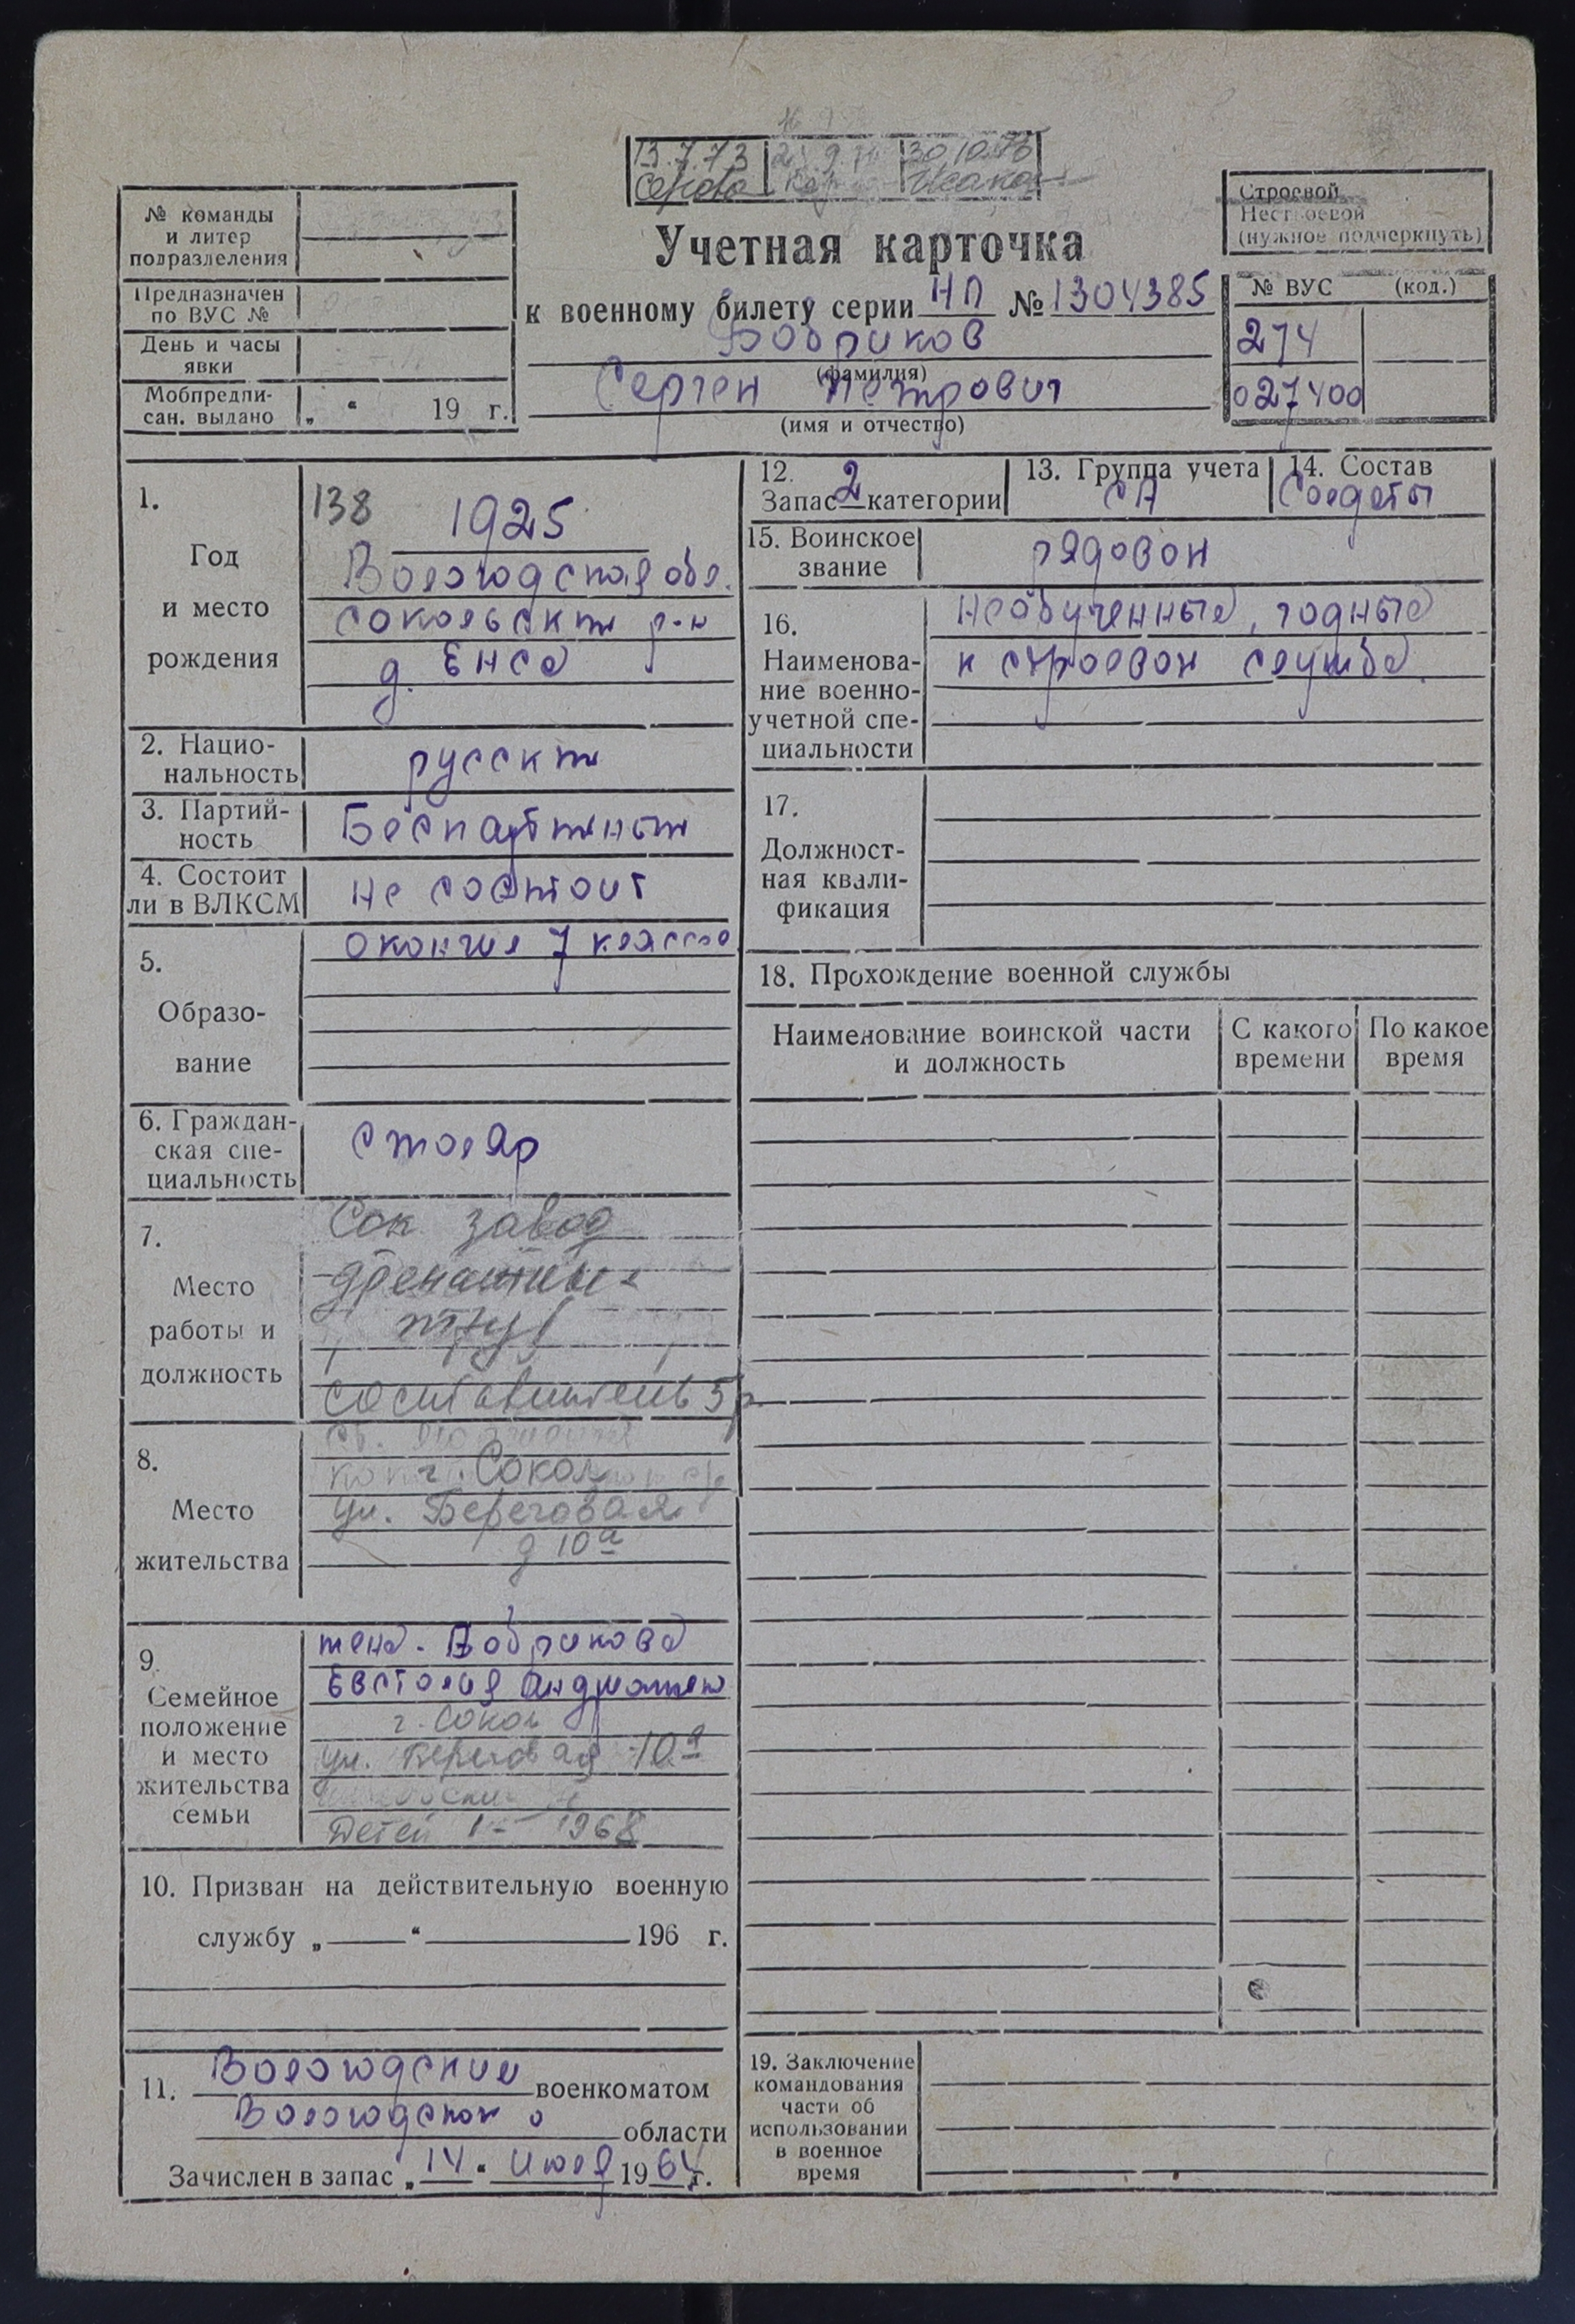 13.7.73
30.10.76
Серова
№ команды
и литер
подразделения
Предназначен
по ВУС №
День и часы
явки
Мобпредпи-
сан. выдано „ “ 19 г.
Учетная карточка
к военному билету серии НП № 1304385
Бобриков
(фамилия)
Сергей Петрович
(имя и отчество)
Строевой
Нестроевой
(нужное подчеркнуть)
№ ВУС (код.)
274
027400
1.
Год
и место
рождения
138 1925
Вологодская обл.
Сокольский р-н
д.
2. Нацио-
нальность
русский
3. Партий-
ность
Беспартийный
4. Состоит
ли в ВЛКСМ
не состоит
5.
Образо-
вание
окончил 7 классов
6. Граждан-
ская спе-
циальность
столяр
7.
Место
работы и
должность
Сок завод
дренажных
труб
составитель 5р
8.
Место
жительства
г. Сокол
ул. Береговая
д 10а
9.
Семейное
положение
и место
жительства
семьи
жена - Бобрикова
Евстолия
г. Сокол
ул. Береговая 10а
Детей 1 - 1968
10. Призван на действительную военную
службу „ “ 196 г.
11. Вологодским военкоматом
Вологодской области
Зачислен в запас „14“ июля 1964 г.
12.
Запас 2 категории
13. Группа учета
СА
14. Состав
Солдаты
15. Воинское
звание
рядовой
16.
Наименова-
ние военно-
учетной спе-
циальности
необученные, годные
к строевой службе.
17.
Должност-
ная квали-
фикация
18. Прохождение военной службы
Наименование воинской части
и должность
С какого
времени
По какое
время
19. Заключение
командования
части об
использовании
в военное
время